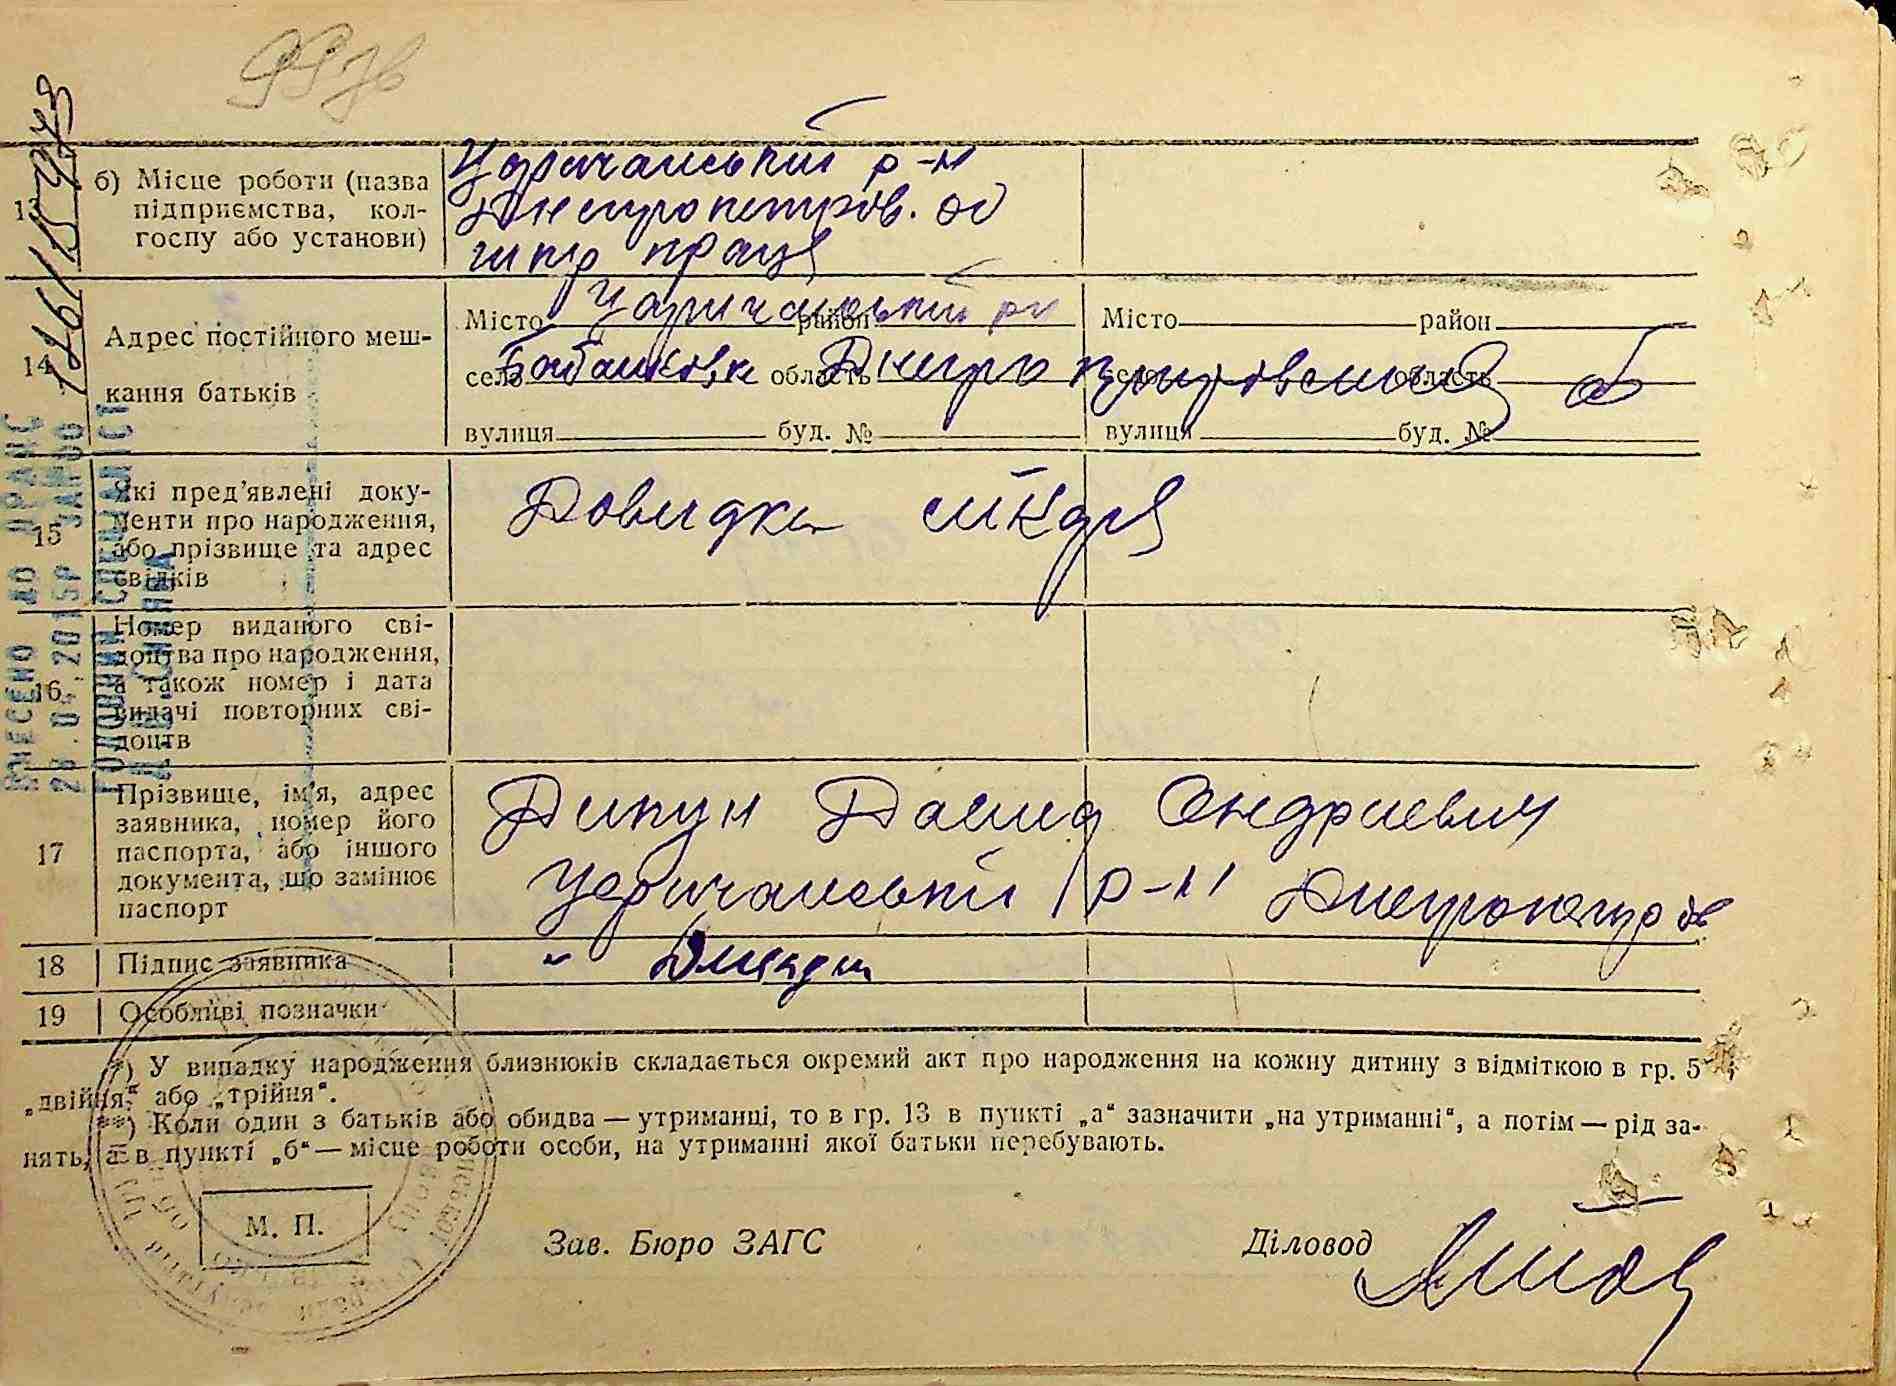 13
б) Місце роботи (назва
підприємства, кол-
госпу або установи)
Царичанський р-н
Днепропетров. об
праця
14
Адрес постійного меш-
кання батьків
Царичанський рн
Місто район
Місто район
село Бабайковка область Днепропетровський об
область
вулиця буд. №
вулиця буд. №
15
Які пред'явлені доку-
менти про народження,
або прізвище та адрес
свідків
Довидка
16
Номер виданого сві-
доцтва про народження,
а також номер і дата
видачі повторних сві-
доцтв
17
Прізвище, ім'я, адрес
заявника, номер його
паспорта, або іншого
документа, що замінює
паспорт
Дипун Давид Андриевич
Царичанський р-н Днепропетров
18
Підпис заявника
19
Особливі позначки
*) У випадку народження близнюків складається окремий акт про народження на кожну дитину з відміткою в гр. 5
„двійня“ або „трійня“.
**) Коли один з батьків або обидва — утриманці, то в гр. 13 в пункті „а“ зазначити „на утриманні“, а потім — рід за-
нять, а в пункті „б“ — місце роботи особи, на утриманні якої батьки перебувають.
М. П.
Зав. Бюро ЗАГС
Діловод
ВНЕСЕНО ДО ДРАЦС
ГОЛОВНИЙ СПЕЦІАЛІСТ